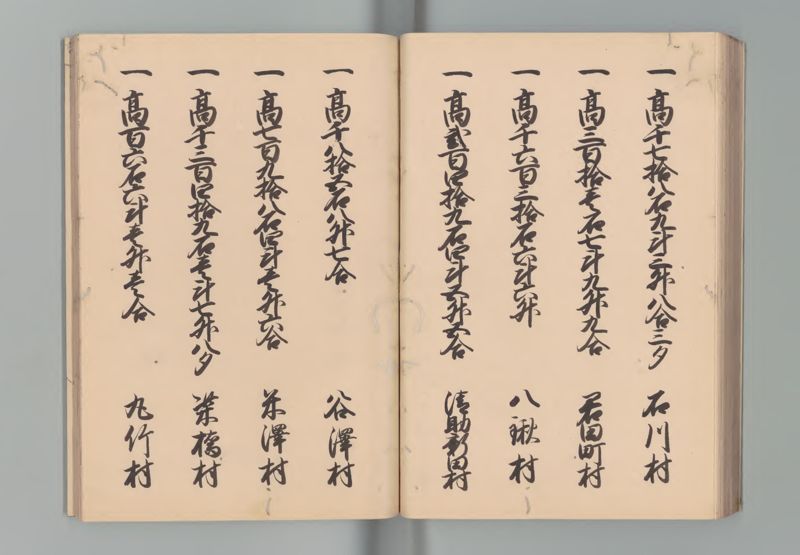 一 高千七拾八石九斗二升八合三夕 石川村
一 高三百拾壱石七斗九升九合 岩田町村
一 高千六百三拾石六斗六升 八鍬村
一 高弐百四拾九石四斗五升五合 清助新田村
一 高千八拾五石八升七合 谷澤村
一 高七百九拾八石四斗壱升六合 米澤村
一 高千三百四拾九石壱斗七升八夕 梁橋村
一 高百六石六斗壱升壱合 丸竹村